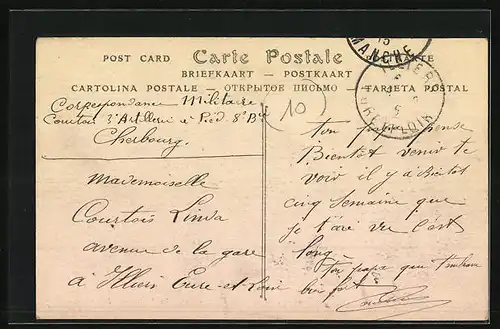 POST CARD Carte Postale
BRIEFKAART — POSTKAART
CARTOLINA POSTALE - ОТКРЫТОЕ ПИСЬМО - TARJETA POSTAL
15
MANCHE
ILLIERS
EURE-ET-LOIR
(10)
Correspondance Militaire
Courtois 3e Artillerie à Pied 8e Bie
Cherbourg.
Mademoiselle
Courtois Linda
avenue de la gare
à Illiers Eure-et-Loir
ton papa pense
Bientot venir te
voir il y a Bientot
cinq semaine que
je t'ai vu c'est
long
Ton papa que t'embrasse
bien fort